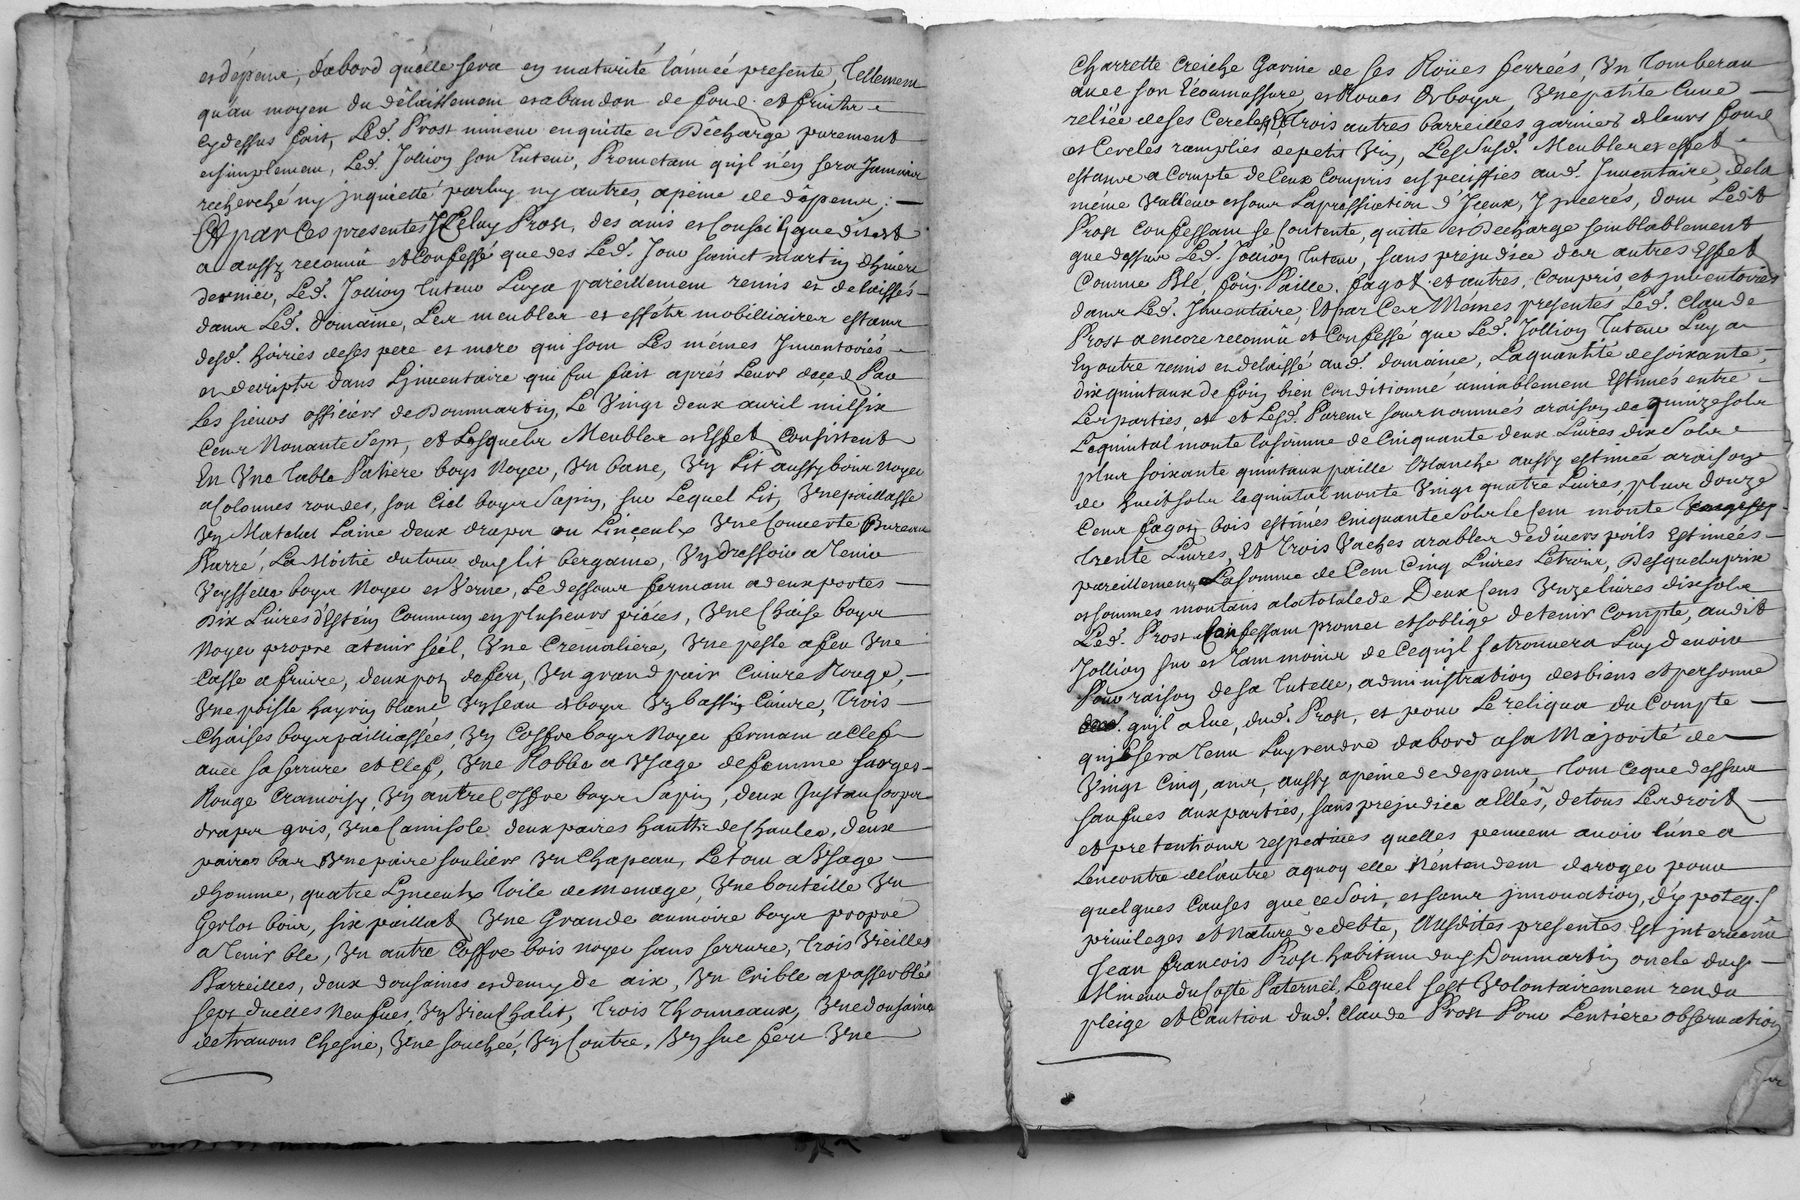 et dépens, d'abord qu'elle sera en maturité l'année presente, tellement
qu'au moyen du délaissement et abandon de et
cy dessus fait, Led. Prost mineur en quitte et décharge purement
et simplement, Led. Jollion son tuteur, Prometant qu'jl n'en sera Jamais
recherché ny jnquietté par luy ny autres, a peine de dépens; —
Et par Ces presentes Jceluy Prost, des avis et Conseil que dit est
a aussy reconnû et Confessé que des Led. Jour saint martin d'hiver
dernier, Led. Jollion tuteur Luy a pareillement remis et delaissés
dans Led. domaine, Les meubles et effets mobilliaires estans
desd. hoiries de ses pere et mere qui sont Les mémes Jnventoriés
et décripts dans L'jnventaire qui fut fait aprés Leurs deced Par
Les sieurs officiers de Dommartin, Le Vingt deux avril mil six
Cent Nonante Sept, et Lesquels Meubles et Effet Consistent
En Vne table Patiere boys Noyer, Vn banc, Vn Lit aussy bois noyer
a Colonnes rondes, son Ciel boys Sapin, sur Lequel Lit, Vne paillasse
Vn Matelat Laine deux draps ou Linceulx Vne Couverte Bureau
Barré, La Moitié du tour dud. lit bergame, Vn dressoir a tenir
Veysselle boys Noyer et Verne, Le dessous fermant a deux portes —
Dix Livres d'Estain Commun en plusieurs pieces, Vne Chaise boys
Noyer propre a tenir séel, Vne Cremaliere, Vne pesle a feu Vne
Casse a frire, deux pot de fer, Vn grand pair Cuivre Rouge, —
Vne poisle hayrin blanc Vn seau de boys Vn bassin Cuivre, trois —
Chaises boys paillassées, Vn Coffre boys Noyer fermant a Clef
avec sa serrure et Clef, Vne Robbe a Vsage de femme sarges
Rouge Cramoisy, Vn autre Coffre boys Sapin, deux Justaucorps
draps gris, Vne Camisole deux paires hautts de Chausses, deux
paires bas Vne paire souliers Vn Chapeau, Le tout a Vsage —
d'homme, quatre Linceulx toile de menage, Vne bouteille Vn
Gerlot bois, six paillat Vne Grande armoire boys propre
a tenir ble, Vn autre Coffre bois noyer sans serrure, trois Vieilles
Barreilles, deux dousaines et demy de aix, Vn Crible a passer blé
sept duelles Neufves, Vn Vieu Chalit, trois thonneaux, Vne dousaine
de travons Chesne, Vne souchée, Vn Coutre, Vn suc fer Vne
Charrette Creiche Garnie de ses Roües ferrées, Vn tomberau
avec son et Roues de boys, Vne petite Cuve —
reliée de ses Cercles, Et trois autres barreilles garnies de leurs fond
et Cercles ramplies de petit Vin, Lesd. Susd. Meubles et effet
estans a Compte de Ceux Compris et specifiés aud. Jnventaire, de la
méme Valleur et sous La pressiation d'Jceux, Y jncerés, dont Led.
Prost Confessant se Contente, quitte et Decharge semblablement
que dessus Led. Jollion tuteur, sans prejudice des autres Effet
Comme Blé, foin, Paille, fagot et autres, Compris et jnventoriés
dans Led. Jnventaire, Et par Ces Mémes presentes Led. Claude
Prost a encore reconnû et Confessé que Led. Jollion tuteur Luy a
En outre remis et delaissé aud. domaine, La quantité de soixante
dix quintaux de foin bien Conditionné amiablement Estimés entre
Les parties, et Lesd. Parens sournommés a raison de quinze sols
Le quintal monte la somme de Cinquante deux Livres dix Sols
plus soixante quintaux paille blanche aussy estimée a raison
de huit sols le quintal monte Vingt quatre Livres, plus douze
Cent fagot bois estimés Cinquante Sols le Cent monte
trente Livres, Et trois Vaches arables de divers poils Estimées —
pareillement La somme de Cent Cinq Livres Letrois, Desquels prix
et sommes montans a la totale de Deux Cens Vnze livres dix sols
Led. Prost Confessant promet et s'oblige de tenir Compte, audit
Jollion sur et tant moins de Ce qu'jl se trouvera Luy devoir
Pour raison de sa tutelle, administration des biens et personne
qu'jl a Eue, dud. Prost, et pour Le reliqua du Compte —
qu'jl sera tenu Luy rendre d'abord a sa Majorité de —
Vingt Cinq ans, aussy a peine de depens, tout ce que dessus
saufues aux parties, sans prejudice a Elles, de tous Les droit —
et pretentions respectives qu'elles peuvent avoir l'une a
L'encontre de l'autre a quoy elle N'entendent deroger pour
quelques Causes que ce soit, et sans jnnovation, d'ypoteq.
privileges et Nature de debte, Ausdites presentes Est jntervenû
Jean francois Prost habitant dud. Dommartin oncle dud. —
Mineur du Coste Paternel, Lequel s'est Volontairement rendu
pleige et Caution dud. Claude Prost Pour L'entiere observation